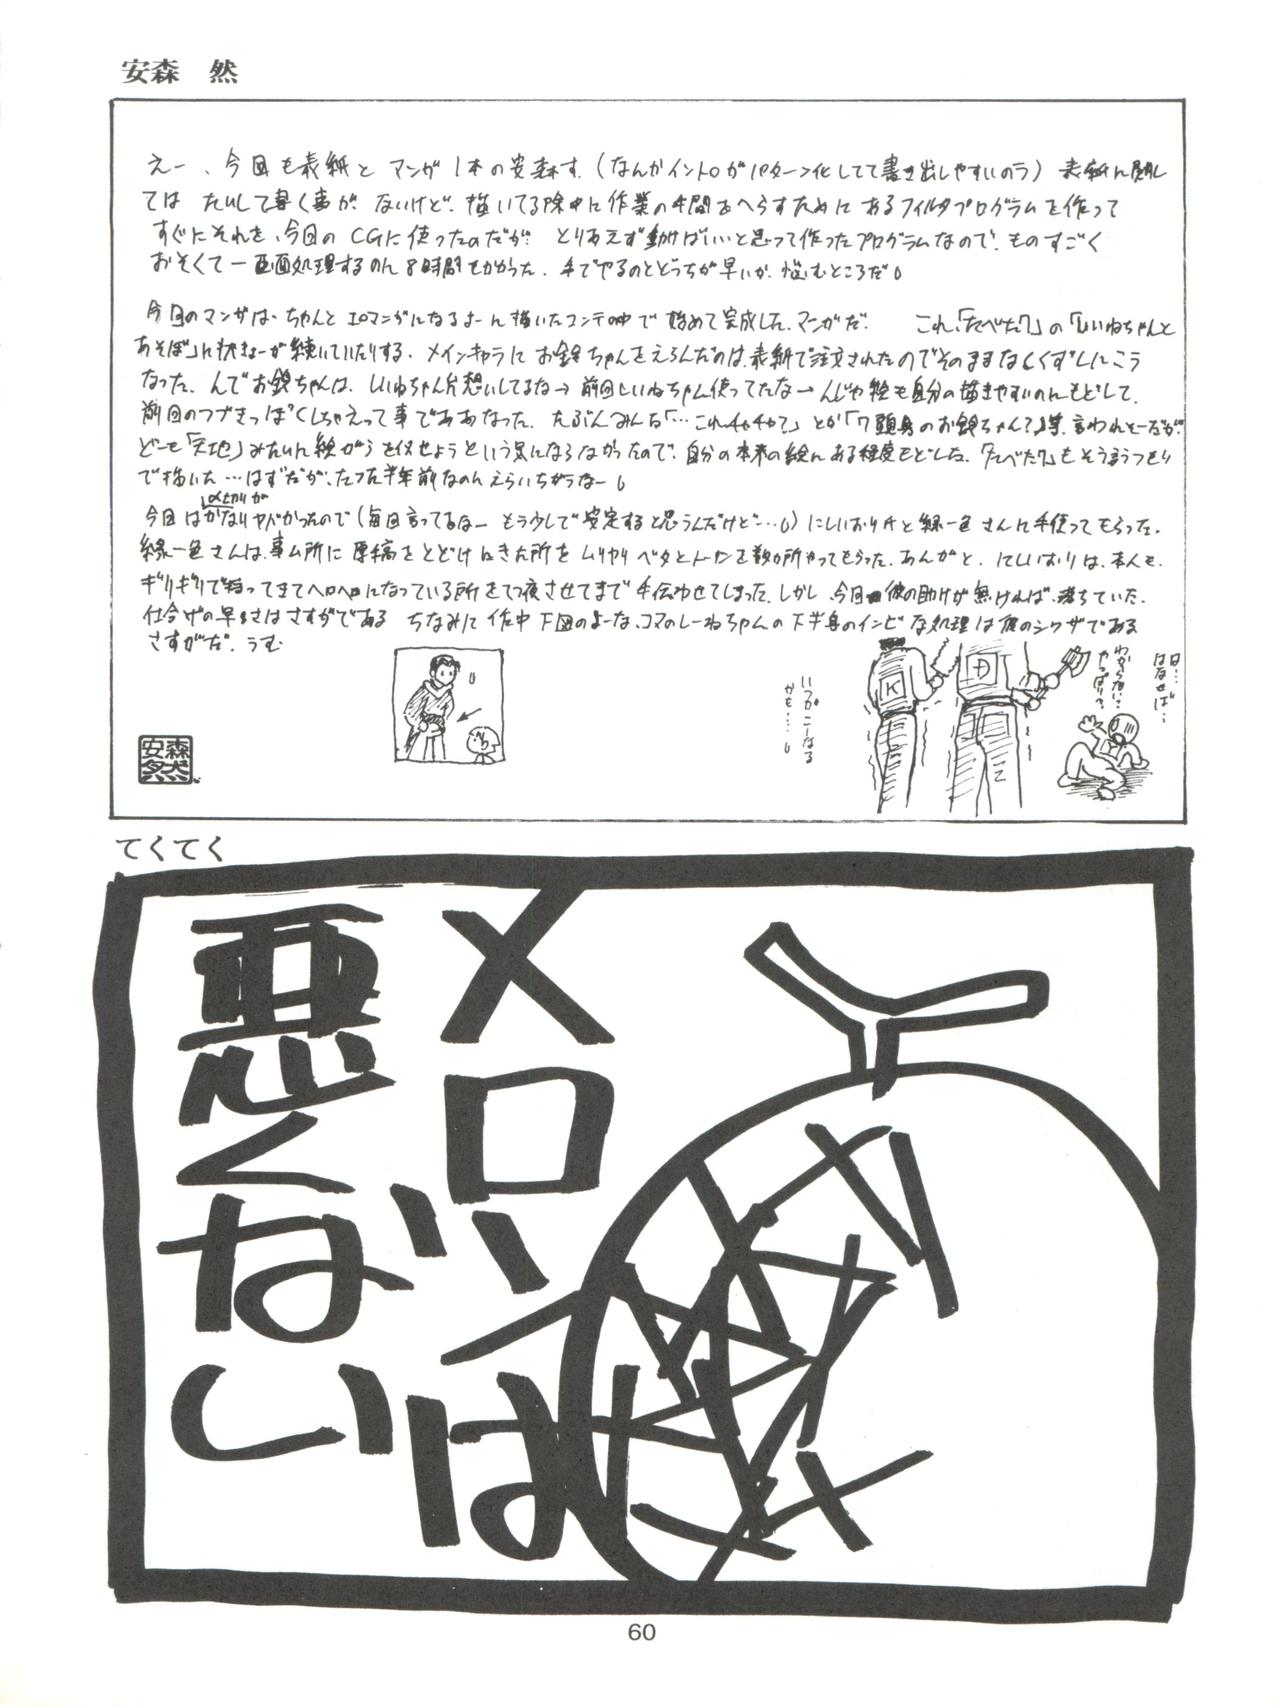 安森 然
えー、今回も表紙と マンガ1本の安森す.(なんかイントロがパターン化してて書き出しやすいのラ) 表紙に関し
ては たいして書く事が ないけど、描いてる際中に作業の手間をへらすために あるフィルタプログラムを作って
すぐにそれを、今回の CGに使ったのだが とりあえず動けばいいと思って作ったプログラムなので、ものすごく
おそくて一画面処理するのん8時間もかかった. 手でやるのとどっちが早いか、悩むところだ
今回のマンガは、ちゃんと エロマンガになるよーん描いたコンテの中で 始めて完成した、マンガだ. これ、「たべた?」の「しいねちゃんと
あそぼ」に 続いていたりする. メインキャラに お鈴ちゃんをえらんだのは、表紙で注文されたのでそのままなしくずしにこう
なった. んでお鈴ちゃんは、しいねちゃん片想いしてるな→ 前回しいねちゃん使ってたな→ んじゃ絵も自分の描きやすいのんもどして.
前回のつづきっぽくしちゃえって事でああなった. たぶんみんな「…これチャチャ?」とか「7頭身のお鈴ちゃん?」等、言われそーだが
どーも「天地」みたいに絵がらを似せようという気にならなかったので、自分の本来の絵んある程度もどした. 「たべた?」もそう言うつもり
で描いた…はずだが、たった半年前なのんえらいちがうなー
〆切りが
今回はかなりヤバかったので(毎回言ってるなー もう少しで安定すると思うんだけど…)にしいおり片と緑一色さんに手伝ってもらった.
緑一色さんは、事ム所に 原稿をとどけにきた所を ムリヤリ ベタとトーンを数カ所やってもらった. あんがと. にしいおりは、本人も.
ギリギリで持ってきてヘロヘロになっている所をてつ夜させてまで 手伝わせてしまった. しかし 今回彼の助けが無ければ、落ちていた.
仕合げの早さはさすがである ちなみに 作中 下図のよーな、コマのしーねちゃんの下半身のインビな処理は彼のシワザである
さすがだ. うむ
は…はなせば…
わからない?やっぱり?
K
D
いつかこーなるかも……
安森然
てくてく
メロンは
悪くない
60